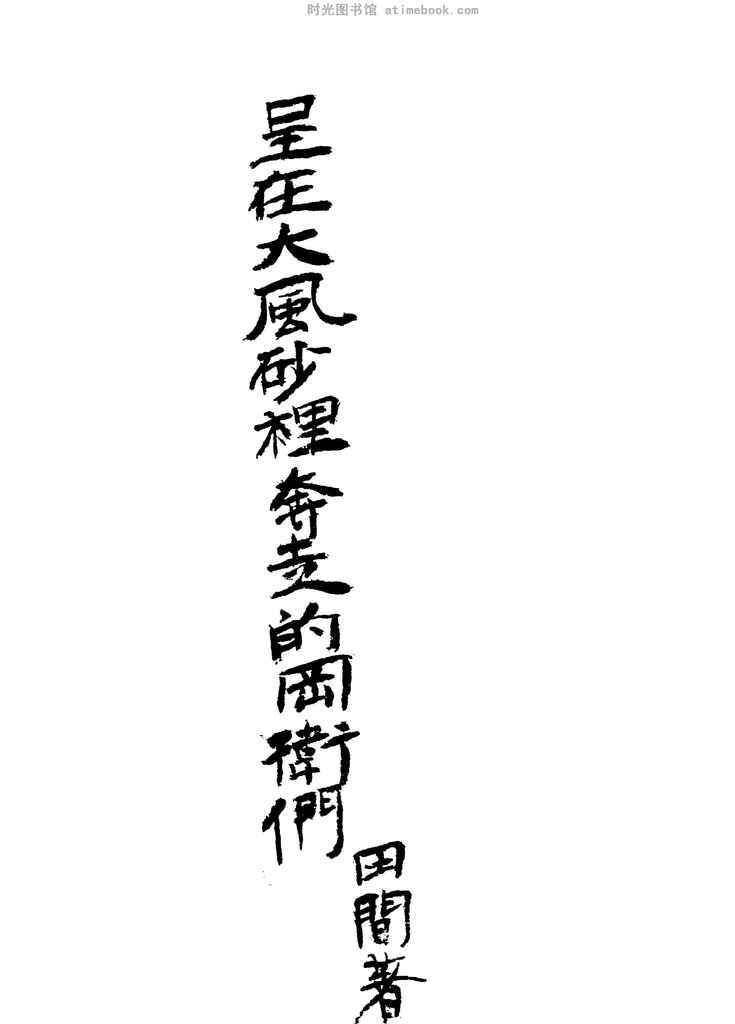 时光图书馆 atimebook.com
呈在大風砂裡奔走的岡衛們
田間著